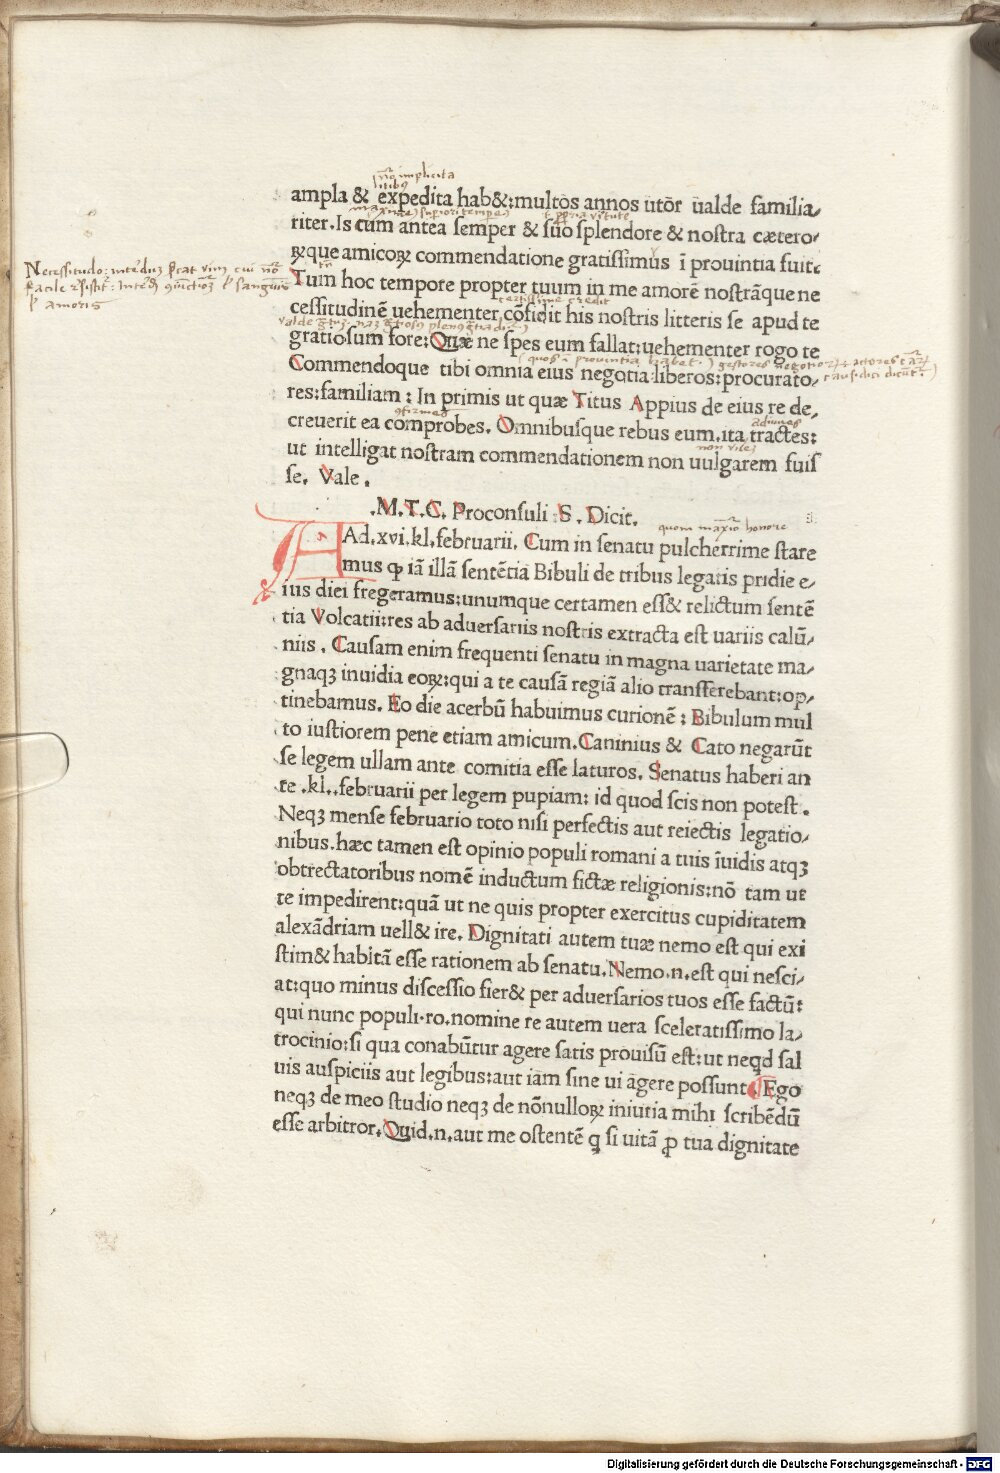 nõ implicita
itibꝰ
ampla & expedita hab&:multos annos utõr ualde familia⸗
riter.Is cum antea semper & suo splendore & nostra cætero⸗
ꝝque amicoꝝ commendatione gratissimus ĩ prouintia fuit.
Necessitudo:
facile
amoris
Tum hoc tempore propter tuum in me amorẽ nostrãque ne
certissime credit
cessitudinẽ uehementer cõfidit his nostris litteris se apud te
gratiosum fore:Quæ ne spes eum fallat:uehementer rogo te
Commendoque tibi omnia eius negotia:liberos:procurato⸗
res:familiam: In primis ut quæ Titus Appius de eius re de⸗
creuerit ea comprobes. Omnibusque rebus eum.ita tractes:
non vile
ut intelligat nostram commendationem non uulgarem fuis
se. Vale.
.M.T.C. Proconsuli S. Dicit.
quom maxĩo honore
AAd.xvi.kl.februarii. Cum in senatu pulcherrime stare
mus ꝙ iã illã sentẽtiã Bibuli de tribus legatis pridie e⸗
ius diei fregeramus:unumque certamen ess& relictum sentẽ
tia Volcatii:res ab aduersariis nostris extracta est uariis calũ⸗
niis. Causam enim frequenti senatu in magna uarietate ma⸗
gnaqꝫ inuidia eoꝝ:qui a te causã regiã alio transferebant:op⸗
tinebamus. Eo die acerbũ habuimus curionẽ: Bibulum mul
to iustiorem pene etiam amicum. Caninius & Cato negarũt
se legem ullam ante comitia esse laturos. Senatus haberi an
te .kl..februarii per legem pupiam: id quod scis non potest.
Neqꝫ mense februario toto nisi perfectis aut reiectis legatio⸗
nibus.hæc tamen est opinio populi romani a tuis ĩuidis atqꝫ
obtrectatoribus nomẽ inductum fictæ religionis:nõ tam ut
te impedirent:quã ut ne quis propter exercitus cupiditatem
alexãdriam uell& ire. Dignitati autem tuæ nemo est qui exi
stim& habitã esse rationem ab senatu. Nemo.n.est qui nesci⸗
at:quo minus discessio fier& per aduersarios tuos esse factũ:
qui nunc populi.ro.nomine re autem uera sceleratissimo la⸗
trocinio:si qua conabũtur agere satis prouisũ est:ut neqd sal
uis auspiciis aut legibus:aut iam sine ui agere possunt. Ego
neqꝫ de meo studio neqꝫ de nõnulloꝝ iniuria mihi scribẽdũ
esse arbitror. Quid.n.aut me ostentẽ q̃ si uitã ꝓ tua dignitate
Digitalisierung gefördert durch die Deutsche Forschungsgemeinschaft - DFG